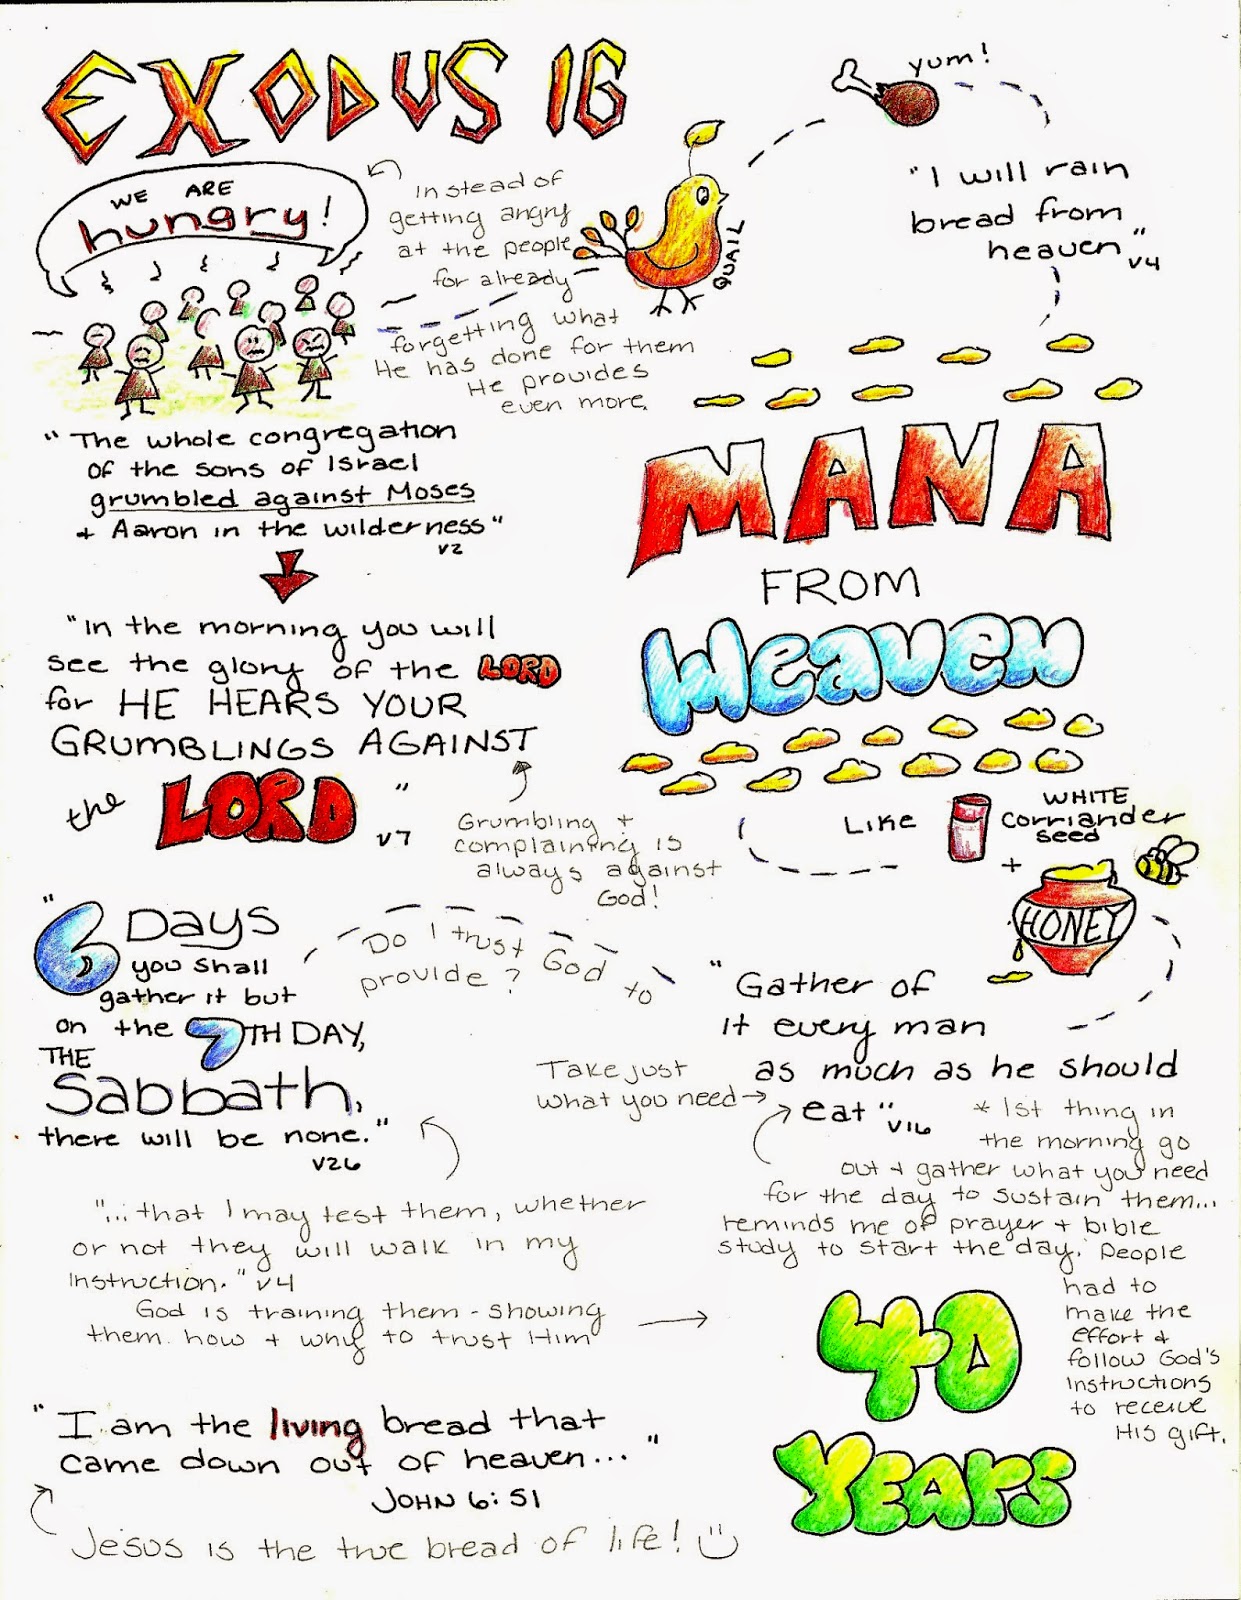 EXODUS 16
WE ARE
hungry!
Instead of
getting angry
at the people
for already
forgetting what
He has done for them
He provides
even more.
QUAIL
yum!
"I will rain
bread from
heaven" v4
"The whole congregation
of the sons of Israel
grumbled against Moses
+ Aaron in the wilderness"
v2
"In the morning you will
see the glory of the LORD
for HE HEARS YOUR
GRUMBLINGS AGAINST
the LORD" v7
Grumbling +
complaining is
always against
God!
MANA
FROM
Heaven
LIKE
WHITE
Corriander
seed
+
HONEY
"6 Days
you shall
gather it but
on the 7TH DAY,
THE
Sabbath,
there will be none."
v26
Do I trust God to
provide?
"Gather of
it every man
as much as he should
eat" v16
Take just
what you need
* 1st thing in
the morning go
out + gather what you need
for the day to sustain them...
reminds me of prayer + bible
study to start the day. People
had to
make the
effort +
follow God's
instructions
to receive
His gift.
"...that I may test them, whether
or not they will walk in my
instruction." v4
God is training them - showing
them how + why to trust Him
40
YEARS
"I am the living bread that
came down out of heaven..."
JOHN 6:51
Jesus is the true bread of life!